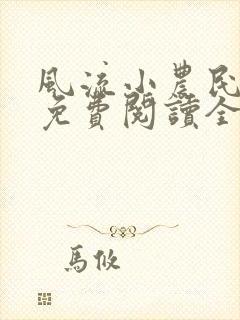 風流小農民
免費閱讀全
馬攸